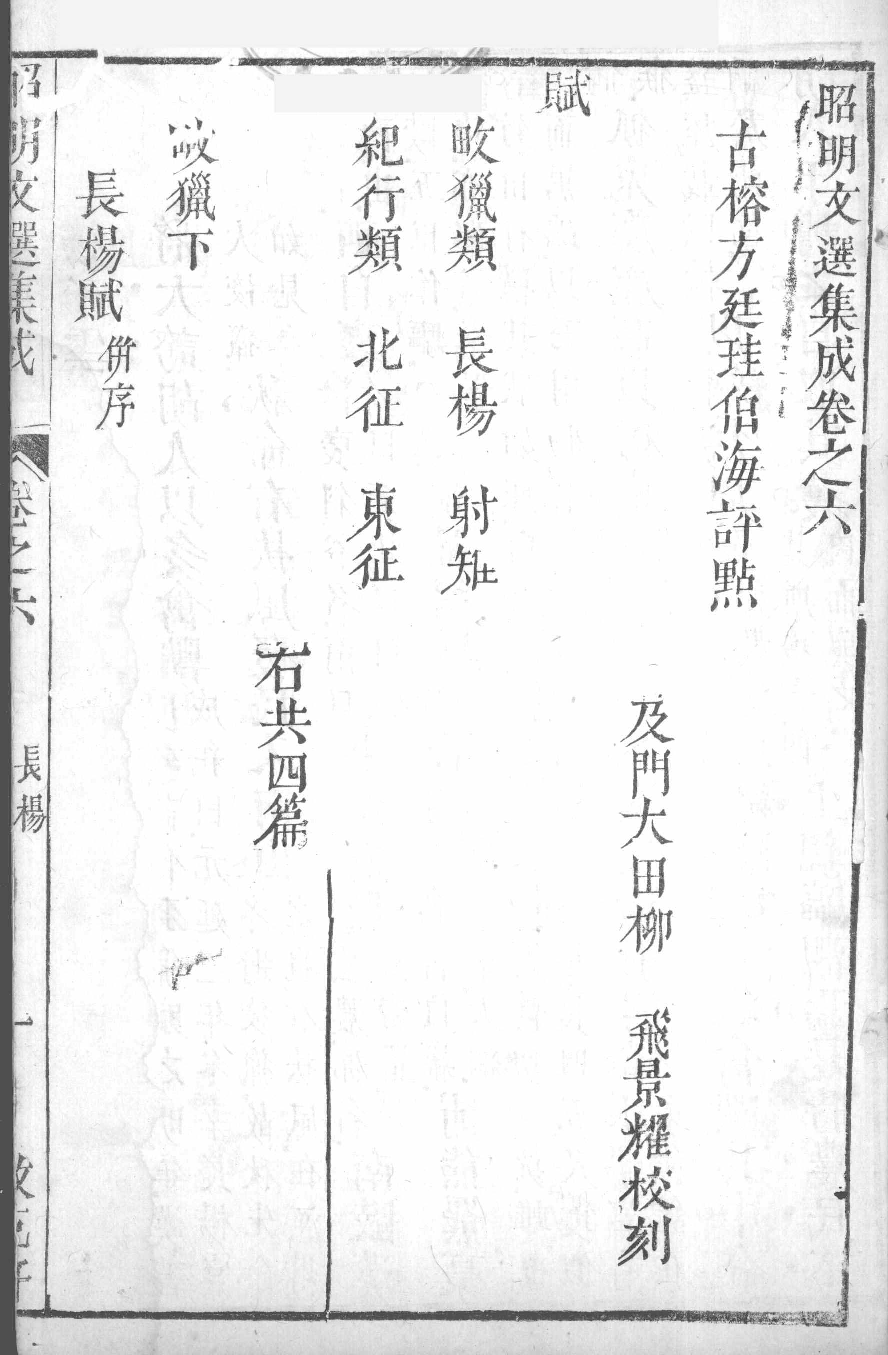 昭明文選集成卷之六
古榕方廷珪伯海評點
及門大田柳　飛景耀校刻
賦
畋獵類　長楊　射雉
紀行類　北征　東征
右共四篇
畋獵下
長楊賦 併序
昭明文選集成　卷之六　長楊　一